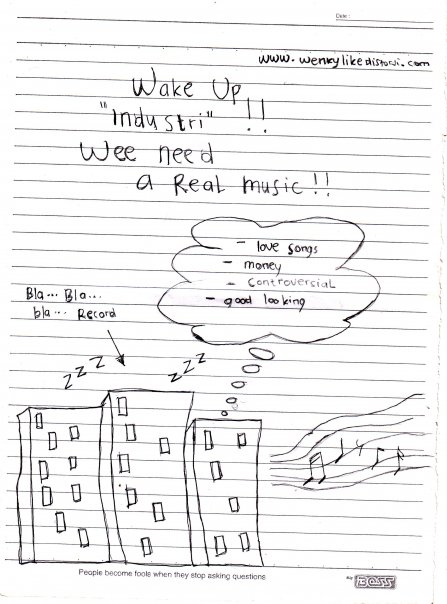 Date :
www.wenkylikedistorsi.com
Wake Up
"industri" !!
Wee need
a Real music !!
- love songs
- money
- Controversial
- good looking
Bla... Bla...
bla... Record
zzz
zzz
People become fools when they stop asking questions
BOSS